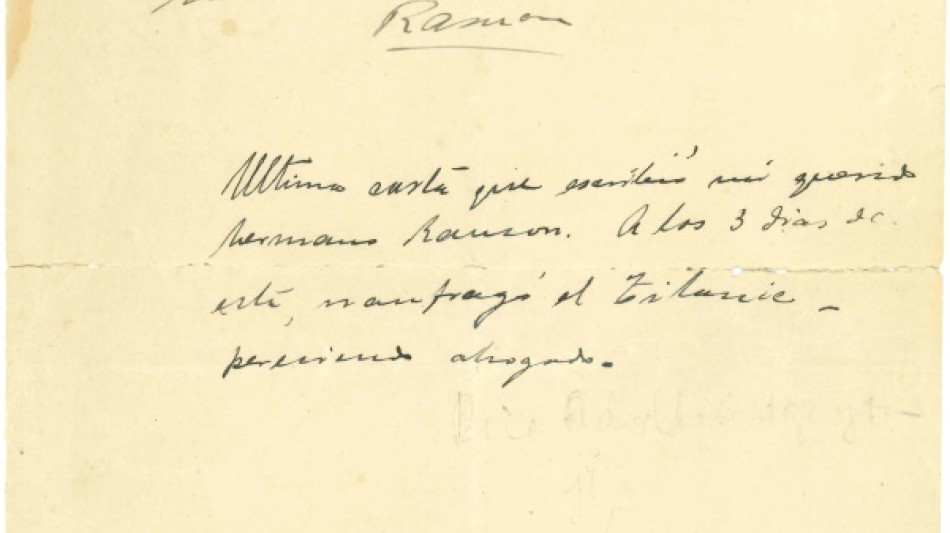 Ramon
Ultima carta que escribió mi querido
hermano Ramon. A los 3 dias de
esta, naufragó el Titanic _
pereciendo ahogado.